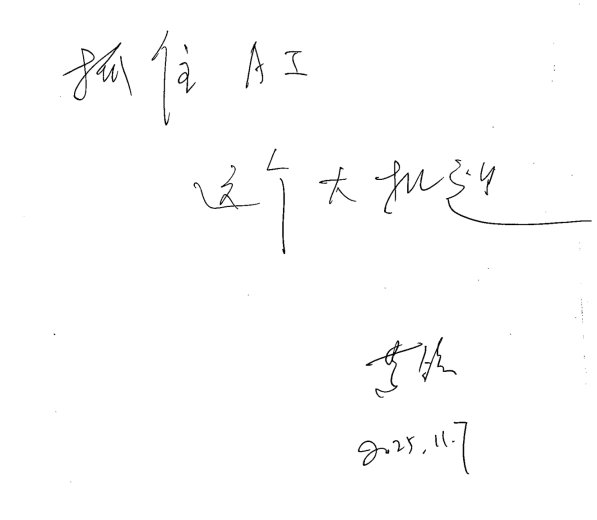 抓住AI
这个大机遇
2025.11.7